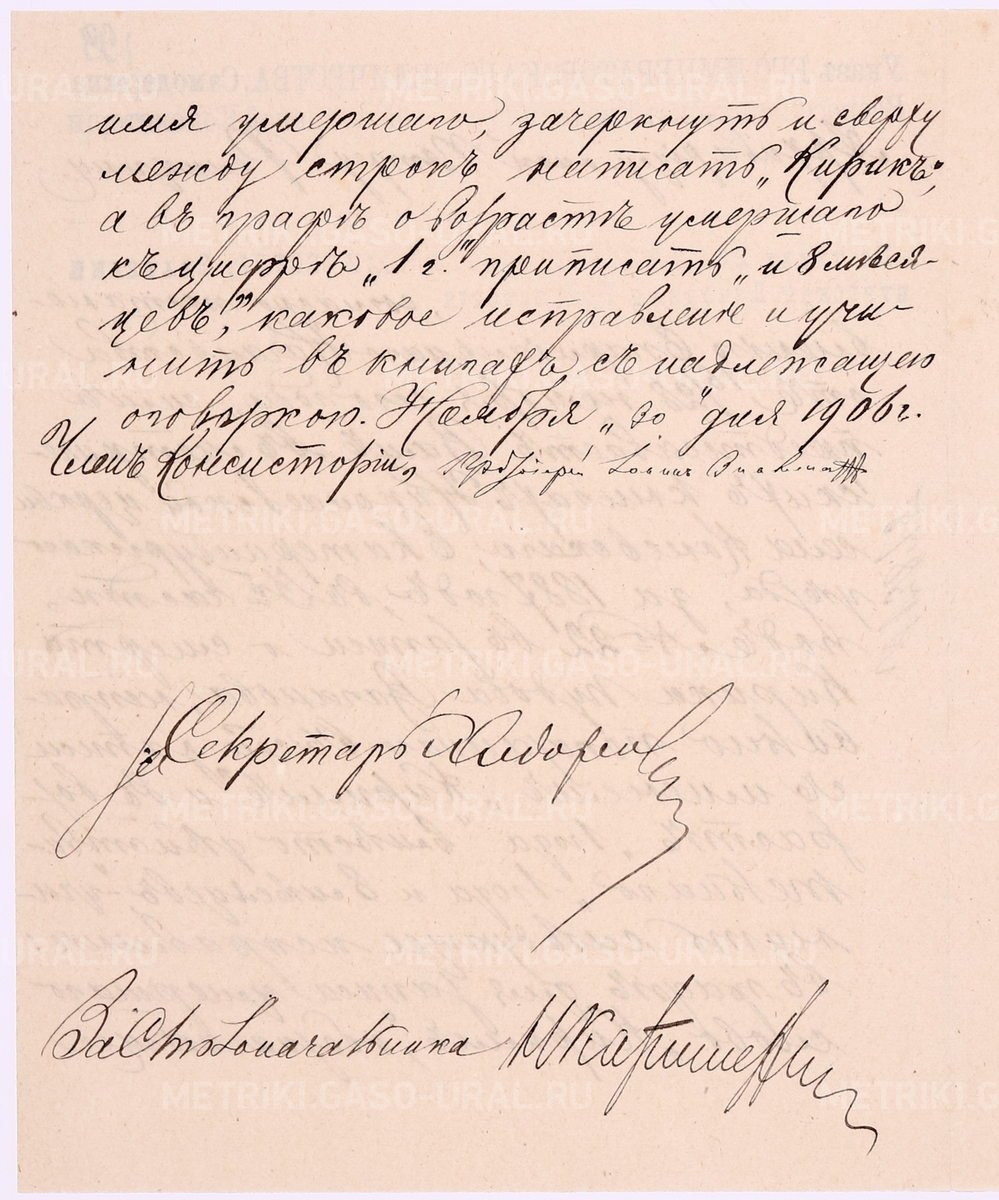 имя умершаго, зачеркнуть и сверху
между строкъ написать „Кирикъ“,
а въ графѣ о возрастѣ умершаго
къ цифрѣ „1 г.“ приписать „и 8 мѣся-
цевъ“, каковое исправленіе и учи-
нить въ книгахъ съ надлежащею
оговоркою. Ноября „30“ дня 1906 г.
Членъ Консисторіи, Іоаннъ
Секретарь
За Столоначальника
METRIKI.GASO-URAL.RU